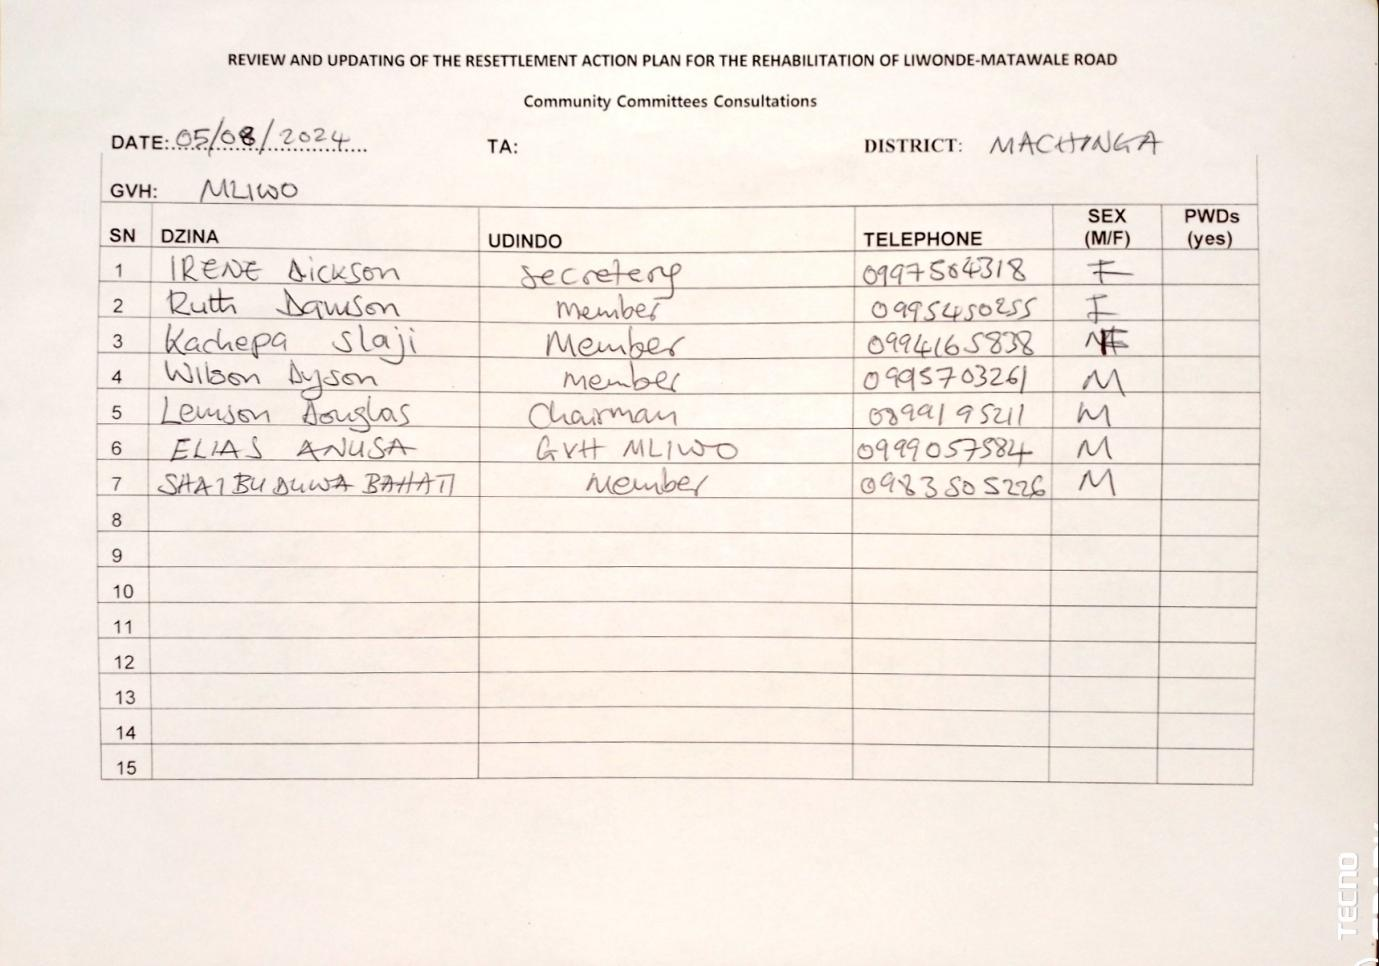 REVIEW AND UPDATING OF THE RESETTLEMENT ACTION PLAN FOR THE REHABILITATION OF LIWONDE-MATAWALE ROAD
Community Committees Consultations
DATE: 05/08/2024 TA: DISTRICT: MACHINGA
GVH: MLIWO
SN DZINA UDINDO TELEPHONE SEX (M/F) PWDs (yes)
1 IRENE Dickson Secretery 0997564318 F
2 Ruth Dawson Member 0995450255 F
3 Kachepa Slaji Member 0994165838
4 Wilson Dyson member 0995703261 M
5 Lemson Douglas Chairman 0899195211 M
6 ELIAS ANUSA GVH MLIWO 0999057584 M
7 SHAIBU DUWA BAHATI Member 0983505226 M
8
9
10
11
12
13
14
15
TECNO